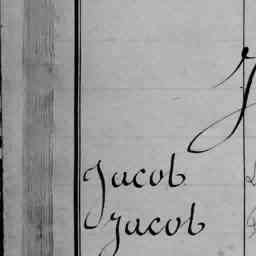 J
Jacob
Jacob